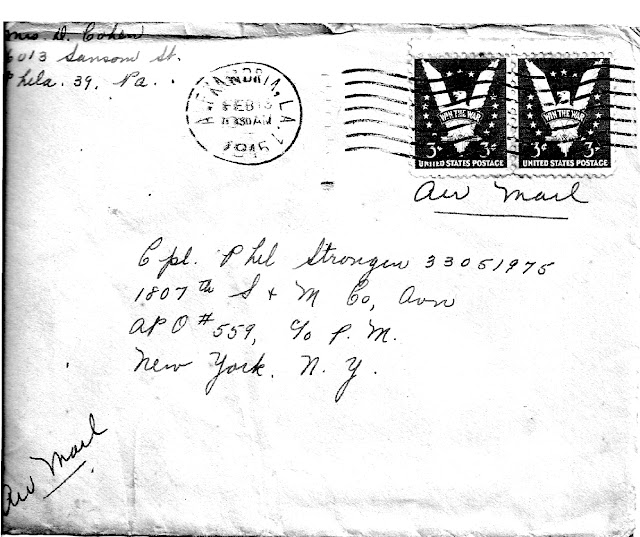 Mrs. D. Cohen
6013 Sansom St.
Phila. 39, Pa.
ALEXANDRIA, LA.
FEB 13
AM
1945
WIN THE WAR
WIN THE WAR
3¢ 3¢
UNITED STATES POSTAGE
UNITED STATES POSTAGE
Air Mail
Cpl. Phil Strongin 33051975
1807th S & M Co, Avn
APO #559, c/o P.M.
New York. N. Y.
Air Mail